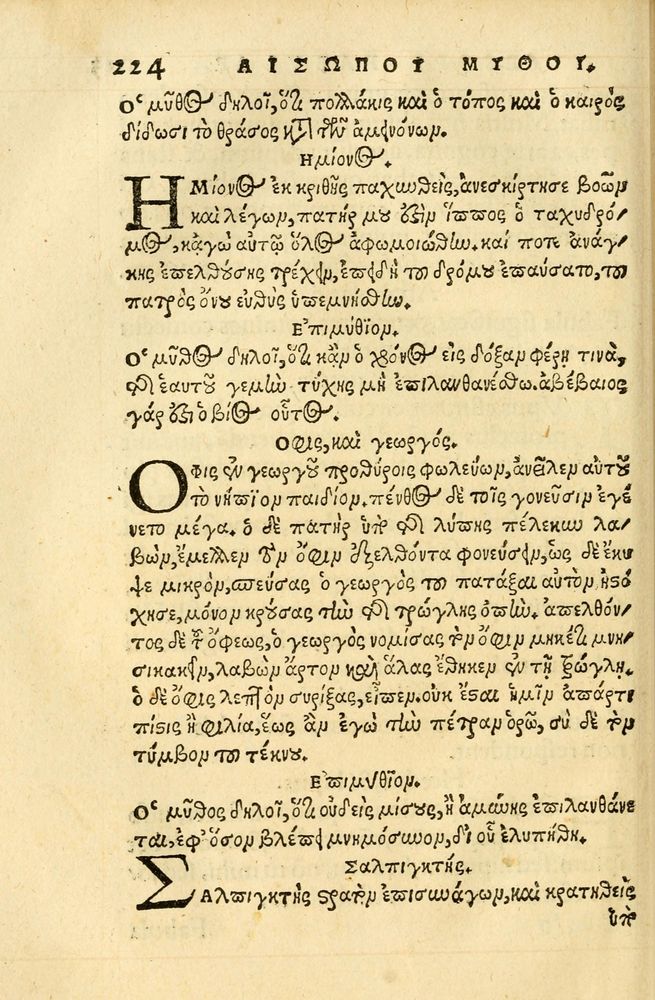 224 ΑΙΣΩΠΟΥ ΜΥΘΟΥ.
Ο μῦθος δηλοῖ, ὅτι πολλάκις καὶ ὁ τόπος καὶ ὁ καιρὸς
δίδωσι τὸ θράσος κατὰ τῶν ἀμεινόνων.
Ημίονος.
ΗΜίονος ἐκ κριθῆς παχυνθεὶς, ἀνεσκίρτησε βοῶν
καὶ λέγων, πατήρ μου ἐστὶν ἵππος ὁ ταχυδρό/
μος, κἀγὼ αὐτῷ ὅλος ἀφωμοιώθην. καί ποτε ἀνάγ/
κης ἐπελθούσης τρέχειν, ἐπειδὴ τοῦ δρόμου ἐπαύσατο, τοῦ
πατρὸς ὄνου εὐθὺς ὑπεμνήσθην.
Επιμύθιον.
Ο μῦθος δηλοῖ, ὅτι κἂν ὁ χρόνος εἰς δόξαν φέρῃ τινὰ,
τῆς ἑαυτοῦ γεμὼ τύχης μὴ ἐπιλανθανέσθω. ἀβέβαιος
γάρ ἐστι ὁ βίος οὗτος.
Οφις, καὶ γεωργός.
ΟΦις ἐν γεωργοῦ προθύροις φωλεύων, ἀνεῖλεν αὐτοῦ
τὸ νήπιον παιδίον. πένθος δὲ τοῖς γονεῦσιν ἐγέ
νετο μέγα. ὁ δὲ πατὴρ ὑπὸ τῆς λύπης πέλεκυν λα/
βὼν, ἔμελλεν τὸν ὄφιν ἐξελθόντα φονεύσειν, ὡς δὲ ἔκυ
ψε μικρὸν, σπεύσας ὁ γεωργὸς τοῦ πατάξαι αὐτὸν ἠστό
χησε, μόνον κρούσας τὴν τῆς τρώγλης ὀπὴν. ἀπελθόν/
τος δὲ τοῦ ὄφεως, ὁ γεωργὸς νομίσας τὸν ὄφιν μηκέτι μνη/
σικακεῖν, λαβὼν ἄρτον καὶ ἅλας ἔθηκεν ἐν τῇ τρώγλῃ.
ὁ δὲ ὄφις λεπτὸν συρίξας, εἶπεν. οὐκ ἔσται ἡμῖν ἀπάρτι
πίστις ἢ φιλία, ἕως ἂν ἐγὼ τὴν πέτραν ὁρῶ, σὺ δὲ τὸν
τύμβον τοῦ τέκνου.
Επιμύθιον.
Ο μῦθος δηλοῖ, ὅτι οὐδεὶς μίσους, ἢ ἀμύνης ἐπιλανθάνε
ται, ἐφ' ὅσον βλέπει μνημόσυνον, δι οὗ ἐλυπήθη.
Σαλπιγκτής.
ΣΑλπιγκτὴς στρατὸν ἐπισυνάγων, καὶ κρατηθεὶς
ὑπὸ